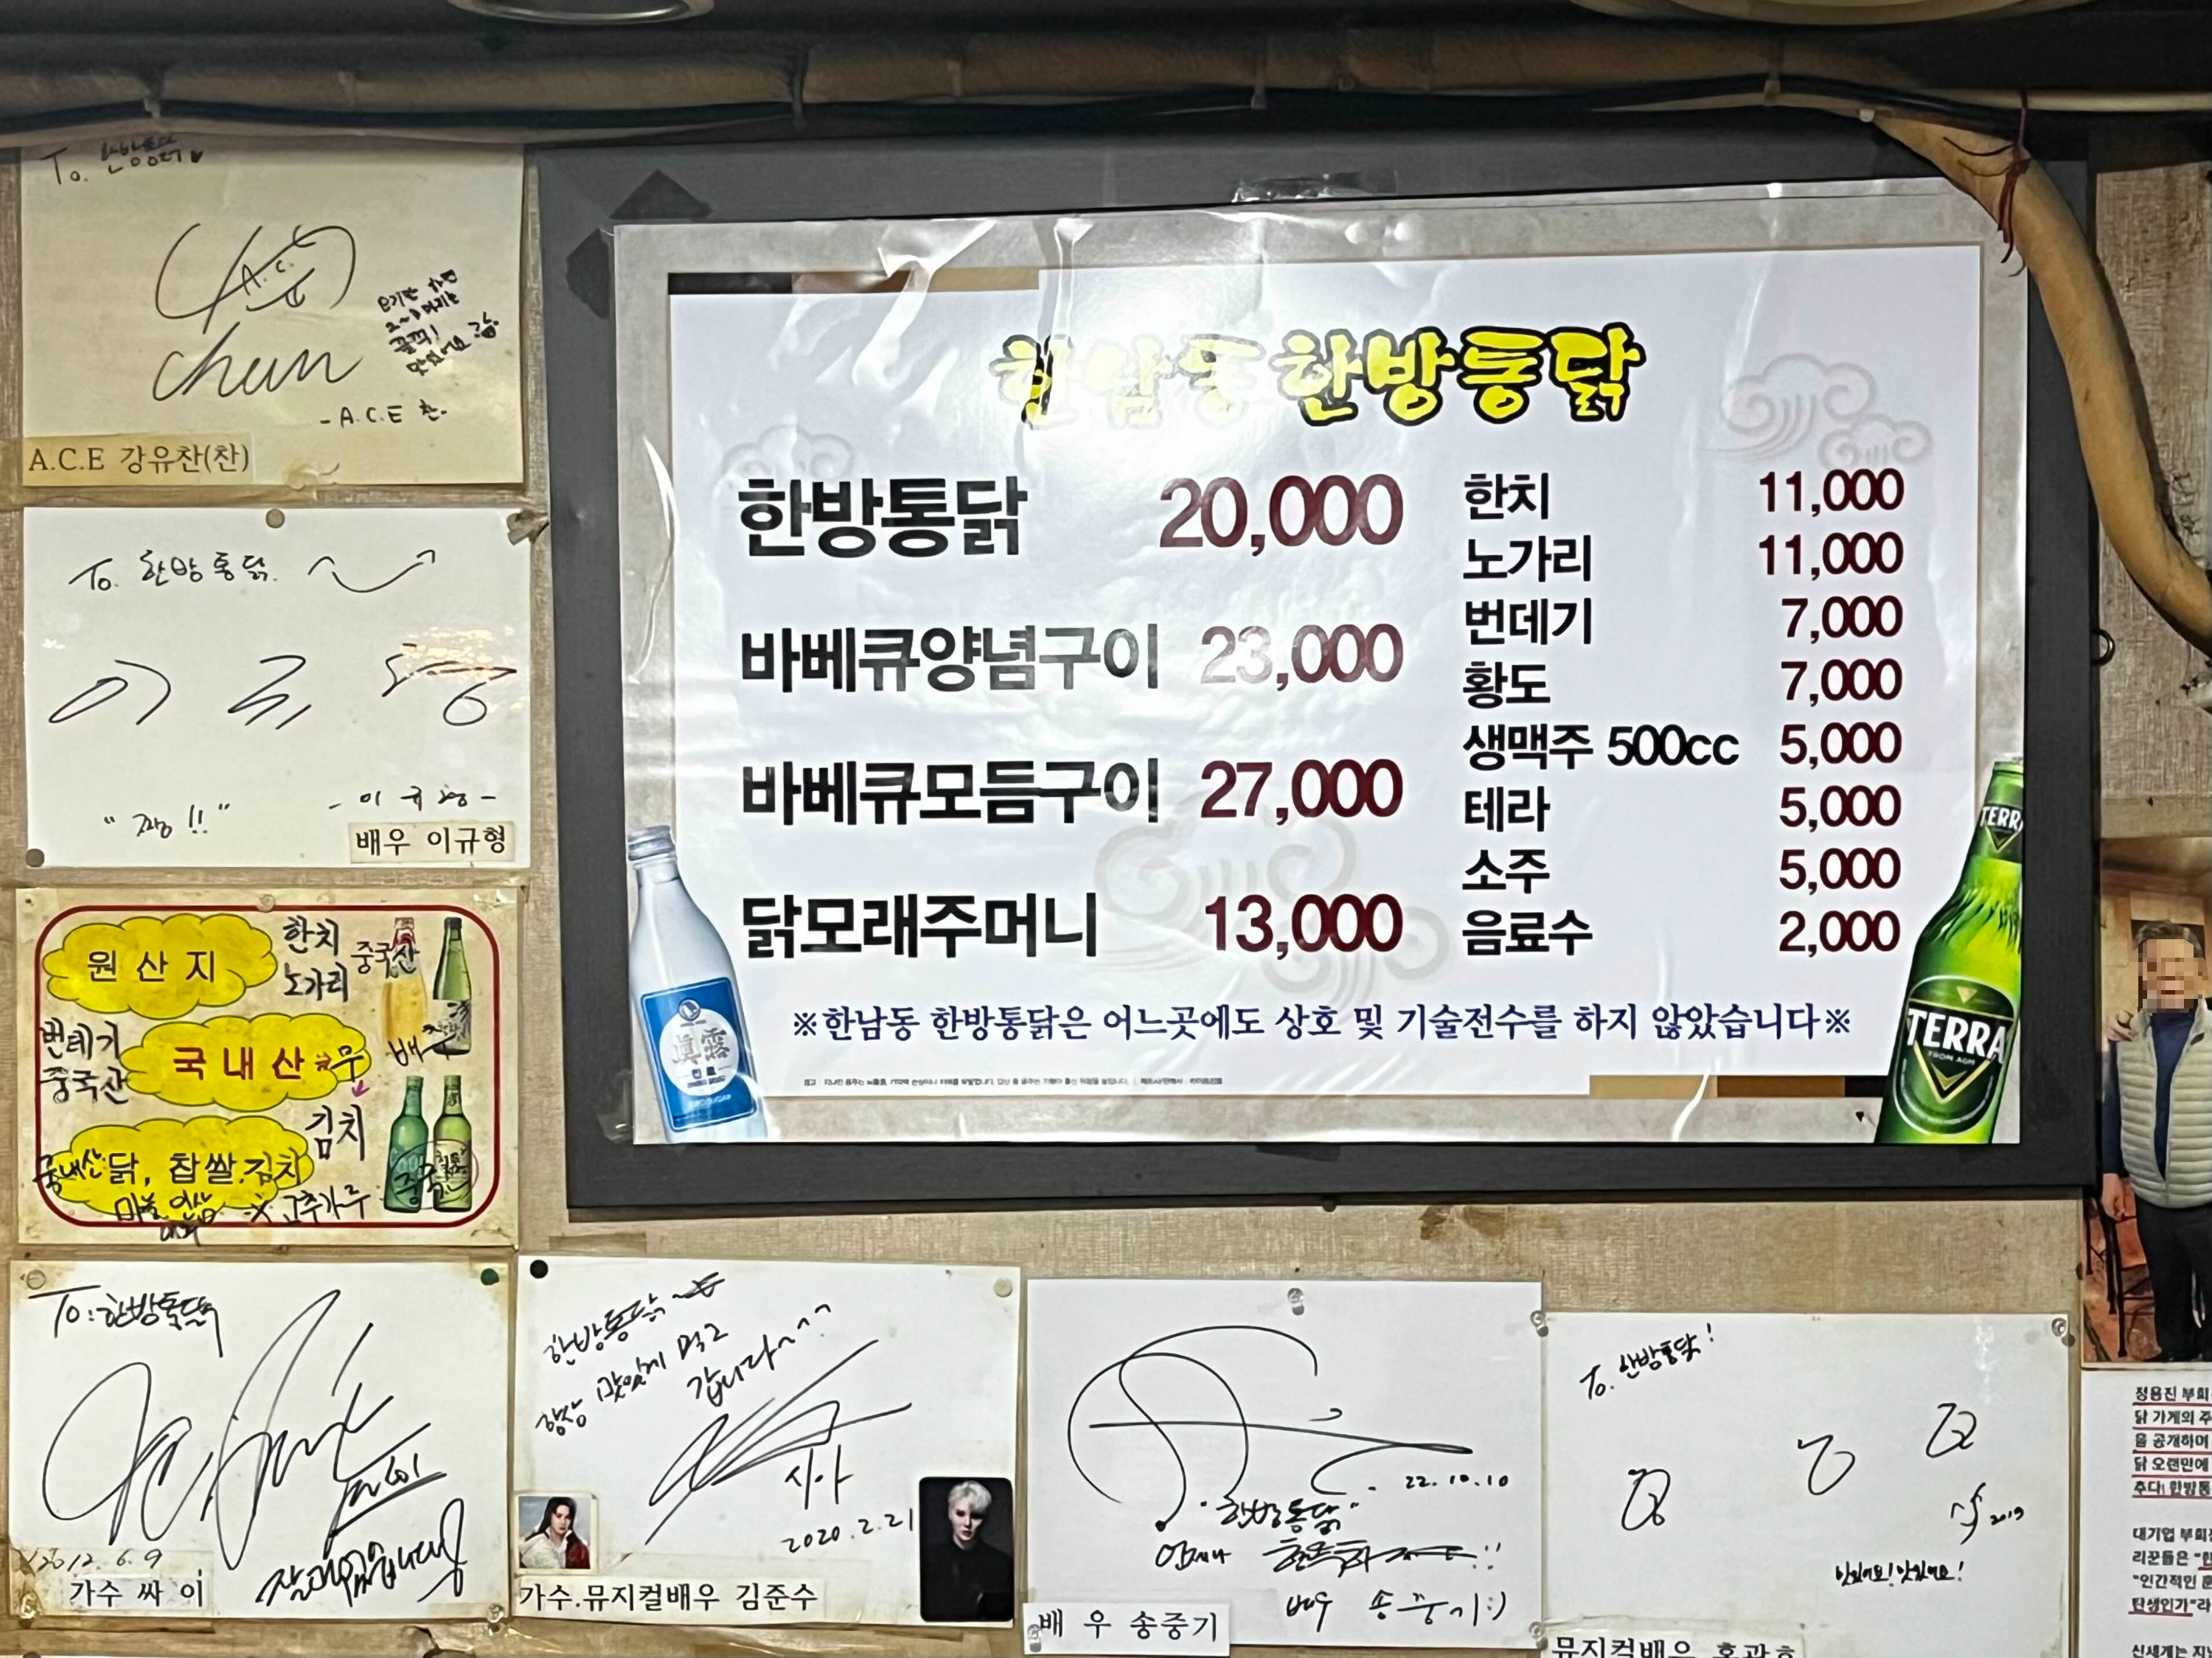 To. 한방통닭
A.C.E
chan
- A.C.E 찬 -
A.C.E 강유찬(찬)
To. 한방통닭
이규형
"짱!!"
- 이규형 -
배우 이규형
원산지
한치
노가리
중국산
번데기
중국산
국내산
※무
배추
김치
국내산 닭, 찹쌀.김치
마늘 인삼
※ 고춧가루
중국산
한남동한방통닭
한방통닭 20,000
바베큐양념구이 23,000
바베큐모듬구이 27,000
닭모래주머니 13,000
한치 11,000
노가리 11,000
번데기 7,000
황도 7,000
생맥주 500cc 5,000
테라 5,000
소주 5,000
음료수 2,000
※한남동 한방통닭은 어느곳에도 상호 및 기술전수를 하지 않았습니다※
眞露
진로
TERRA
TERRA
FROM AGM
To: 한방통닭
2012. 6. 9
잘먹었습니다!
가수 싸이
한방통닭
항상 맛있게 먹고
갑니다~^^
시아
2020.2.21
가수.뮤지컬배우 김준수
22.10.10
"한방통닭"
언제나
배우 송중기:)
배우 송중기
To. 한방통닭!
2019
맛있어요! 맛있어요!
뮤지컬배우 홍광호
정용진 부회
닭 가게의 주
을 공개하며
닭 오랜만에
주다! 한방통
대기업 부회
리꾼들은
"인간적인
탄생인가"라
신세계는 지난